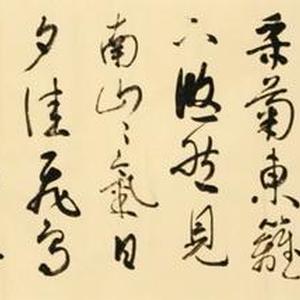 采菊東籬
下悠然見
南山〻氣日
夕佳飛鳥